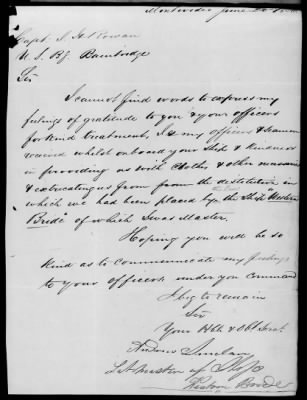 Montevideo June
Capt. S. H. Rowan
U. S. Bg. Bainbridge
Sir
I cannot find words to express my
feelings of gratitude to you & your officers
for kind treatments, I & my officers & seamen
received whilst onboard your Ship & kindness
in providing us with Clothes & other
& extricating us from from the destitution in
which we had been placed by the Ship "Western
Bride" of which I was Master.
Hoping you will be so
kind as to communicate my feelings
to your officers under you Command
I beg to remain
Sir
Your Hble & Obt Servt.
Sinclair
Lt Master of Ship
Western Bride